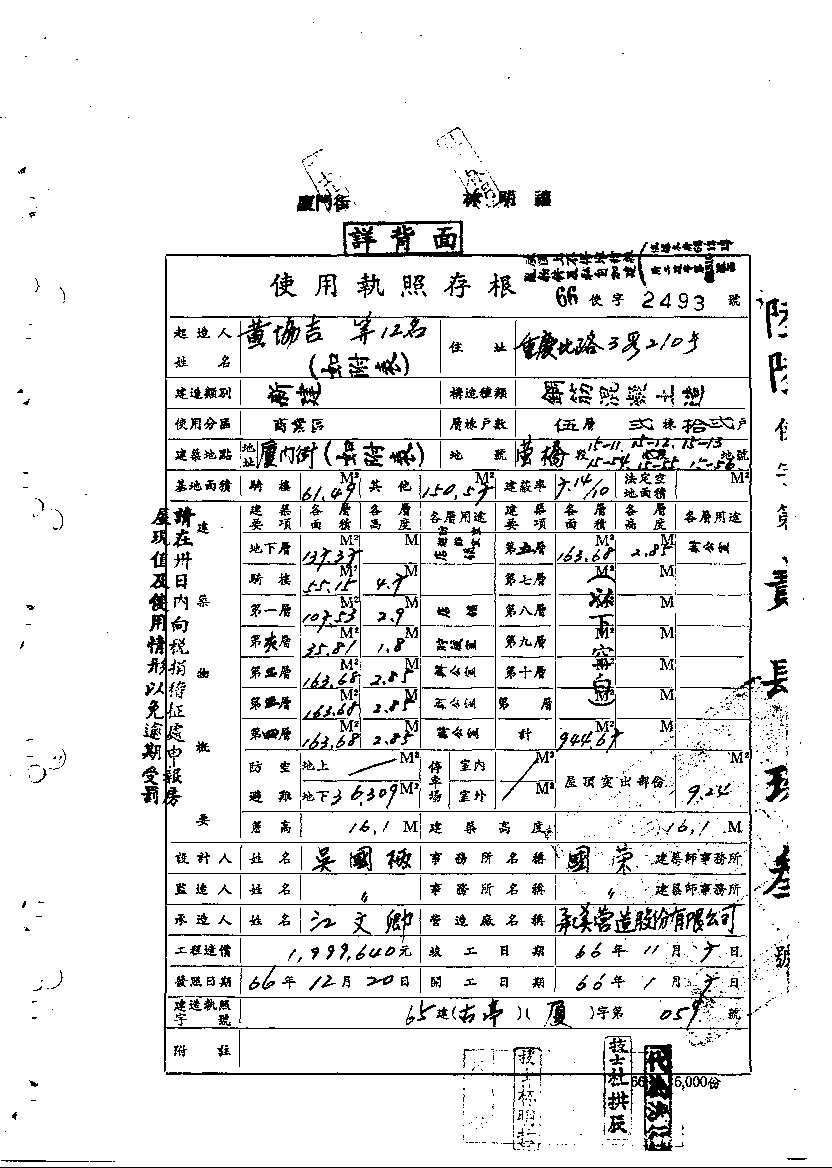 廈門街 林明禧
詳背面
使用執照存根
66 使字 2493 號
起造人姓名 黃協吉 等12名 (如附表) 住址 重慶北路3段210號
建造類別 新建 構造種類 鋼筋混凝土造
使用分區 商業區 層棟戶數 伍層 弍棟 拾弍戶
建築地點 地址 廈門街(如附表) 地號 螢橋段 15-11, 15-12, 15-13 15-54, 15-55, 15-56 地號
基地面積 騎樓 61.49 M² 其他 150.57 M² 建蔽率 7.14/10 法定空地面積 M²
建築物概要
建築要項 各層面積 各層高度 各層用途 建築要項 各層面積 各層高度 各層用途
地下層 137.37 M² M 第五層 163.68 M² 2.85 M 辦公室
騎樓 55.15 M² 4.7 M 第七層 M² M
第一層 107.53 M² 2.9 M 店舖 第八層 M² M
第夾層 35.81 M² 1.8 M 第九層 M² M
第二層 163.68 M² 2.85 M 辦公室 第十層 M² M
第三層 163.68 M² 2.85 M 辦公室 第 層 M² M
第四層 163.68 M² 2.85 M 辦公室 計 944.67 M² M
(以下空白)
防空避難 地上 M² 停車場 室內 M² 屋頂突出部份 9.24 M²
地下 36.309 M² 室外 M²
簷高 16.1 M 建築高度 16.1 M
設計人 姓名 吳國極 事務所名稱 國榮 建築師事務所
監造人 姓名 〃 事務所名稱 〃 建築師事務所
承造人 姓名 江文卿 營造廠名稱 營造股份有限公司
工程造價 1,999,640元 竣工日期 66年11月7日
發照日期 66年12月20日 開工日期 66年1月7日
建造執照字號 65建(古亭)(廈)字第 059 號
附註
請在卅日內向稅捐稽征處申報房
屋現值及使用情形以免逾期受罰
技士杜拱辰
5,000份